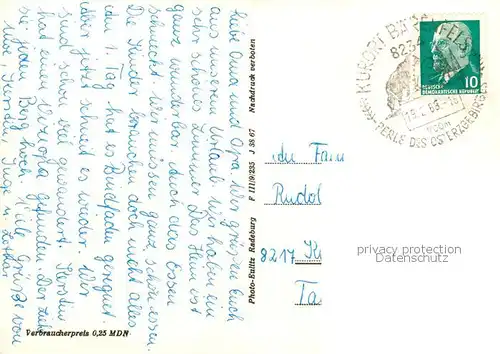 Liebe Oma und Opa! Wir grüßen Euch
aus unserem Urlaub. Wir haben ein
sehr schönes Zimmer. Das Heim ist
ganz wunderbar. Auch das Essen
schmeckt. Wir müssen ganz schön essen.
Die Kinder brauchen doch nicht alles.
Den 1. Tag hat es Bindfaden geregnet
aber jetzt schneit es wieder. Wir
sind schon viel gewandert. Kerstin
hat einen Verehrer gefunden. Der zieht
sie jeden Berg hoch. Viele Grüße von
Kerstin, Inge u. Lothar
Verbraucherpreis 0,25 MDN
Photo-Eulitz Radeburg F III/9/235 J 38 67 Nachdruck verboten
KURORT BÄRENFELS
8234
PERLE DES OSTERZGEBIRGES
DEUTSCHE
DEMOKRATISCHE REPUBLIK
10
die Fam
Rudol
8217
privacy protection
Datenschutz